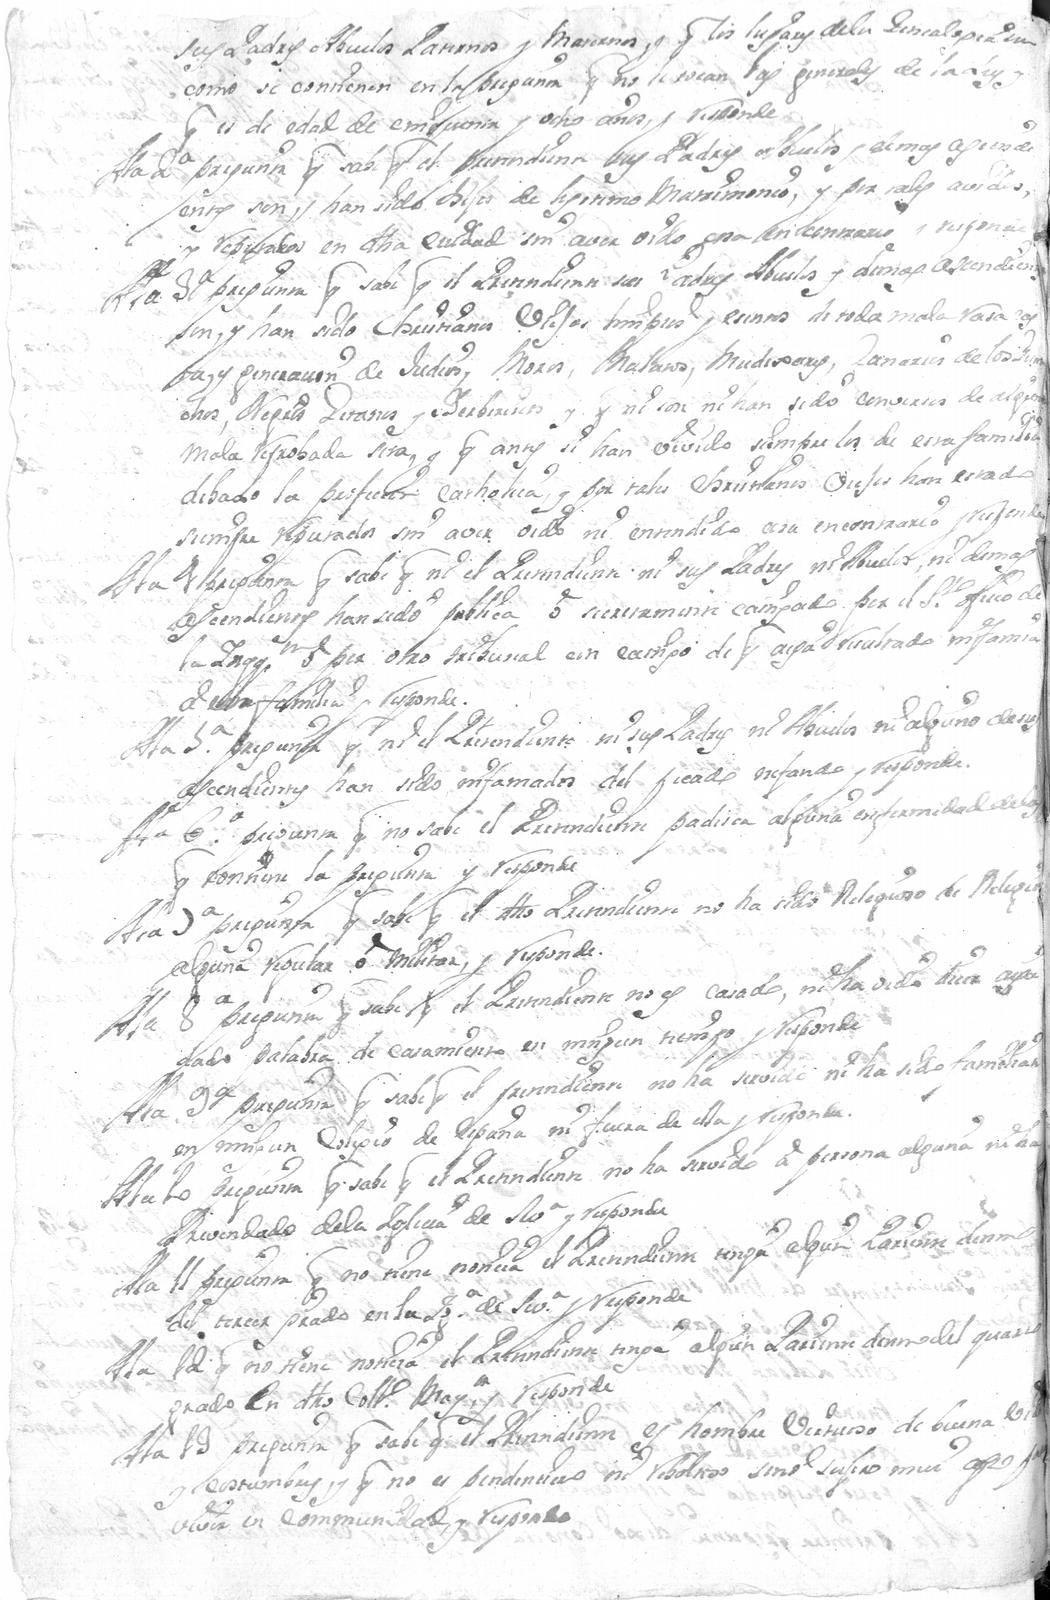 sus Padres Abuelos Paternos y Maternos, y q los lugares dela
como se contienen en la pregunta q no le tocan las generales de la Ley y
q es de edad de cinquenta y ocho años, y responde
Ala 2ª pregunta q sabe q el pretendiente sus Padres Abuelos y demas
son, y han sido hijos de lexitimo Matrimonio, y por tales avidos,
y reputados en dha Ciudad sin aver oido cosa en contrario y responde
Ala 3ª pregunta q sabe q el Pretendiente sus Padres Abuelos y demas Ascendien
son, y han sido Christianos Viejos limpios y esentos de toda mala rasa
y generacion de Judios, Moros, Mulatos, Mudexares, Canarios de los
Negros Gitanos y Berberiscos y q ni son ni han sido conversos de alguna
mala reprobada seta, y q antes si han vivido siempre los de esta familia
debaxo la profesion Catholica, y por tales Christianos Viejos han estado
siempre reputados sin aver oido ni entendido cosa encontrario y responde
Ala 4 pregunta q sabe q ni el Pretendiente ni sus Padres ni Abuelos, ni demas
Ascendientes han sido publica ô secretamente castigados por el Sto oficio de
la Inqqon ô por otro tribunal con castigo de q aya resultado infamia
â esta familia y responde.
Ala 5.ª pregunta q ni el Pretendiente ni sus Padres ni Abuelos ni alguno de sus
Ascendientes han sido infamados del pecado nefando y responde.
Ala 6.ª pregunta q no sabe el Pretendiente padesca alguna enfermedad delas
q contiene la pregunta y responde
Ala 7ª pregunta q sabe q el dho Pretendiente no ha sido Religioso de Religion
alguna regular ô Militar, y responde.
Ala 8ª pregunta q sabe q el Pretendiente no es casado, ni ha oido decir aya
dado palabra de casamiento en ningun tiempo y responde
Ala 9ª pregunta q sabe q el pretendiente no ha servido ni ha sido familiar
en ningun Colegio de España ni fuera de ella y responde.
Ala 10 pregunta q sabe q el Pretendiente no ha servido â persona alguna ni ha
Prevendado dela Iglecia de Sevª y responde
Ala 11 pregunta q no tiene noticia el Pretendiente tenga algun Pariente dentro
del tercer grado en la Igª de Sev.ª y responde
Ala 12 q no tiene noticia el Pretendiente tenga algun Pariente dentro del quarto
grado en dho Collº Mayor, y responde
Ala 13 pregunta q sabe q el Pretendiente es hombre virtuoso de buena vida
y costumbres, y q no es pendenciero ni reboltoso sino sujeto mui apto pa
vivir en Communidad, y responde